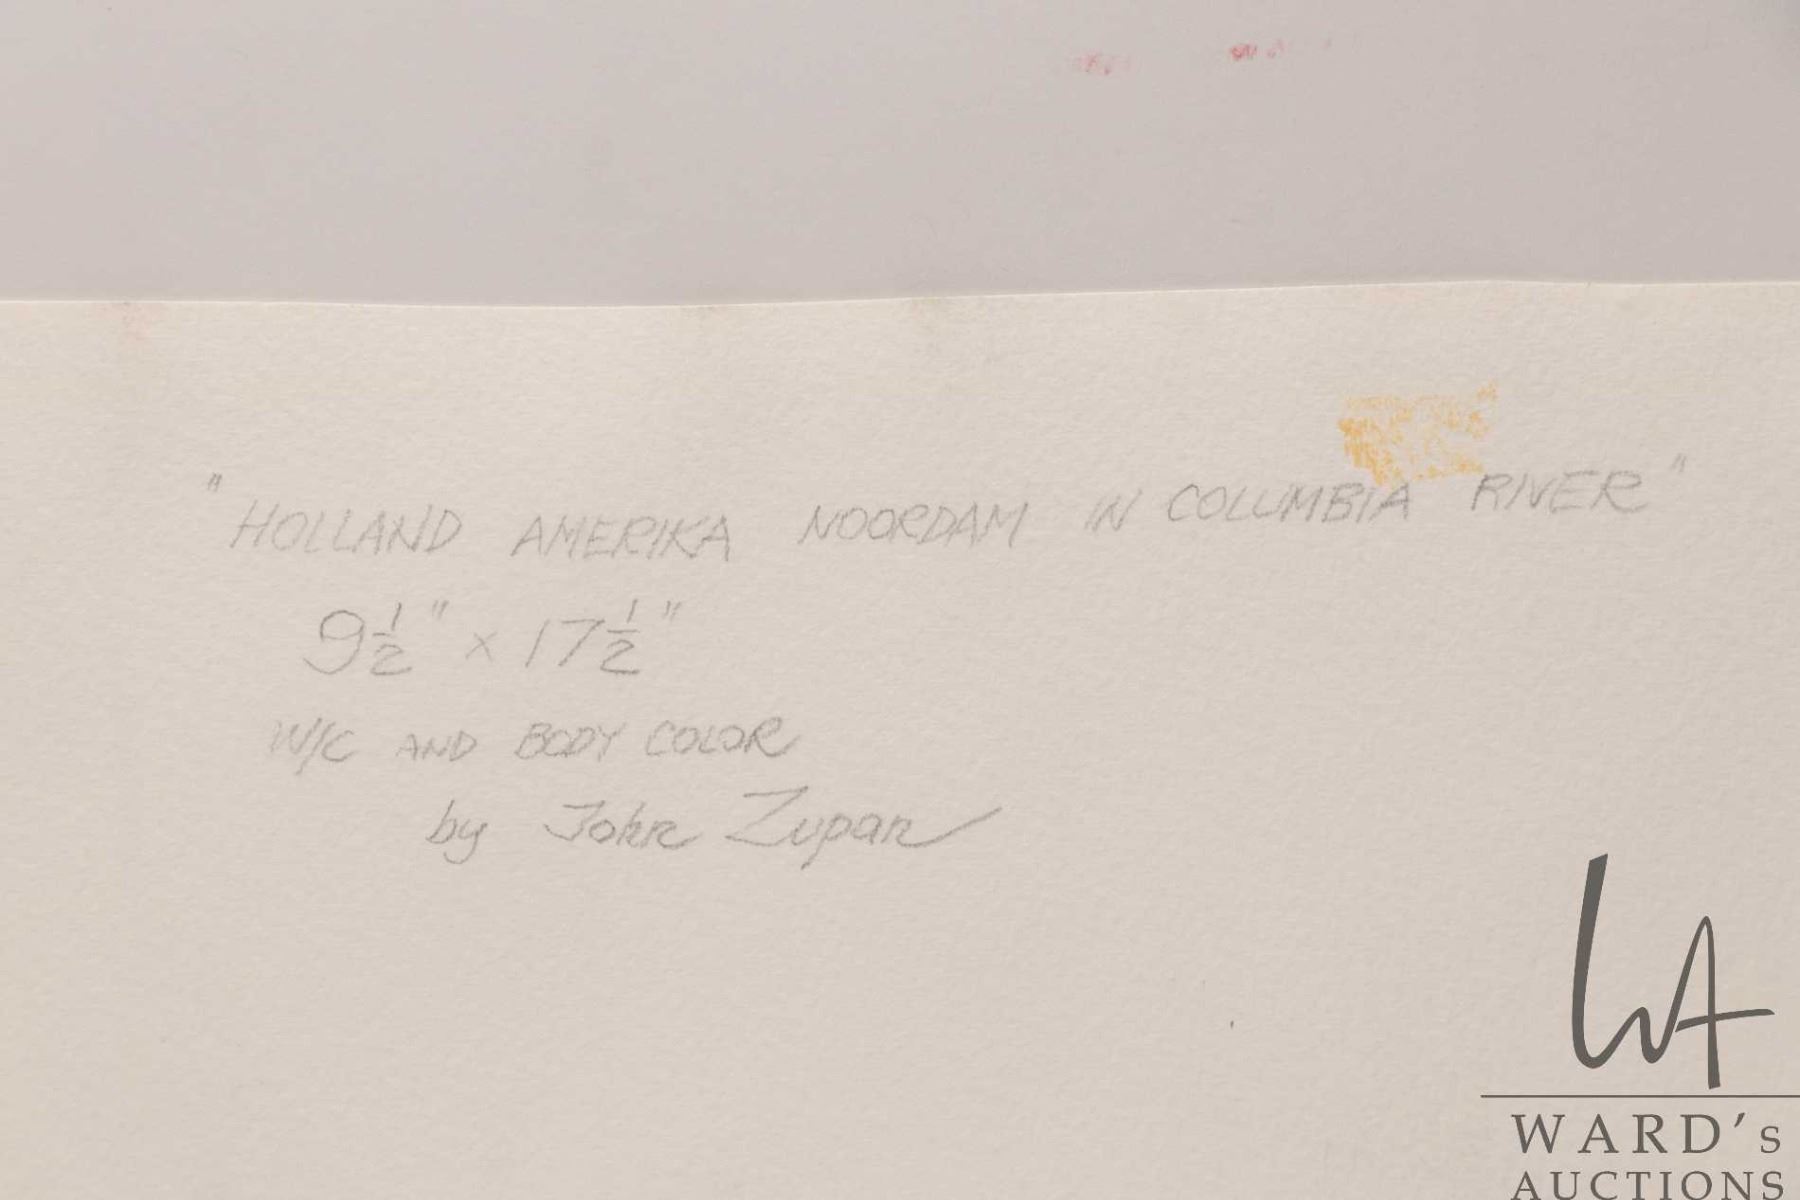 "HOLLAND AMERIKA NOORDAM IN COLUMBIA RIVER"
9 1/2" x 17 1/2"
W/C AND BODY COLOR
by John Zupan
WA
WARD's
AUCTIONS